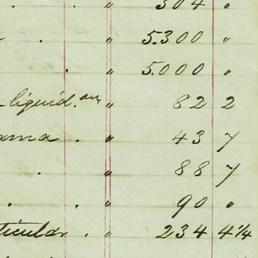 . . " 304 "
. " 5.300 "
. " 5.000 "
liquid.on " 82 2
ama . " 43 7
. " 88 7
. . " 90 "
ticular . " 234 4¼